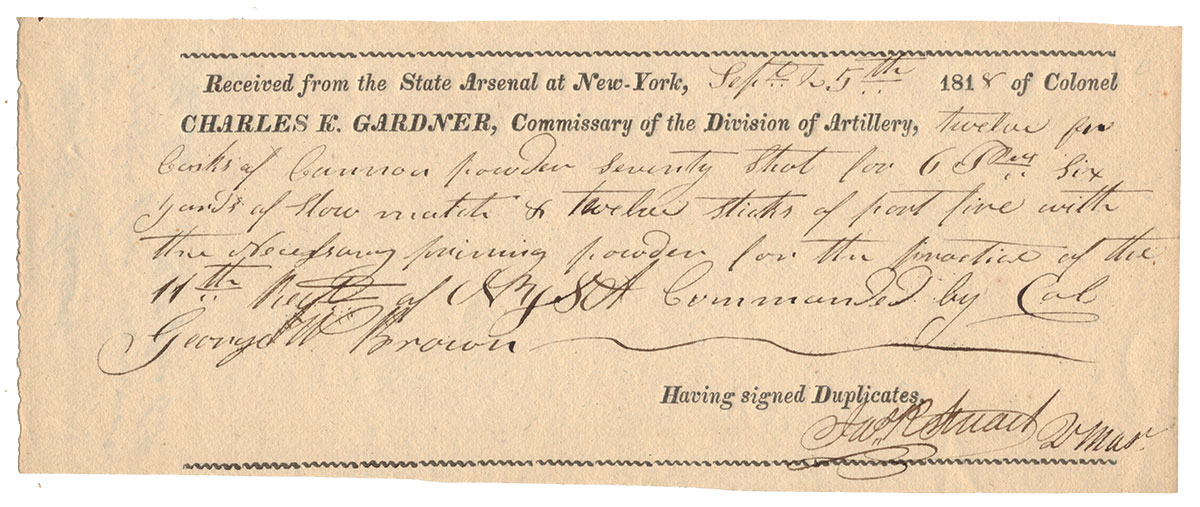 Received from the State Arsenal at New-York, Sept 25th 1818 of Colonel
CHARLES K. GARDNER, Commissary of the Division of Artillery, twelve
Casks of Cannon powder seventy shot for 6 Six
yards of slow match & twelve sticks of port fire with
the Necessary priming powder for the practice of the
11th Regt of NYSA Commanded by Col
George W Brown
Having signed Duplicates,
Jas R Stuart Qr Mas